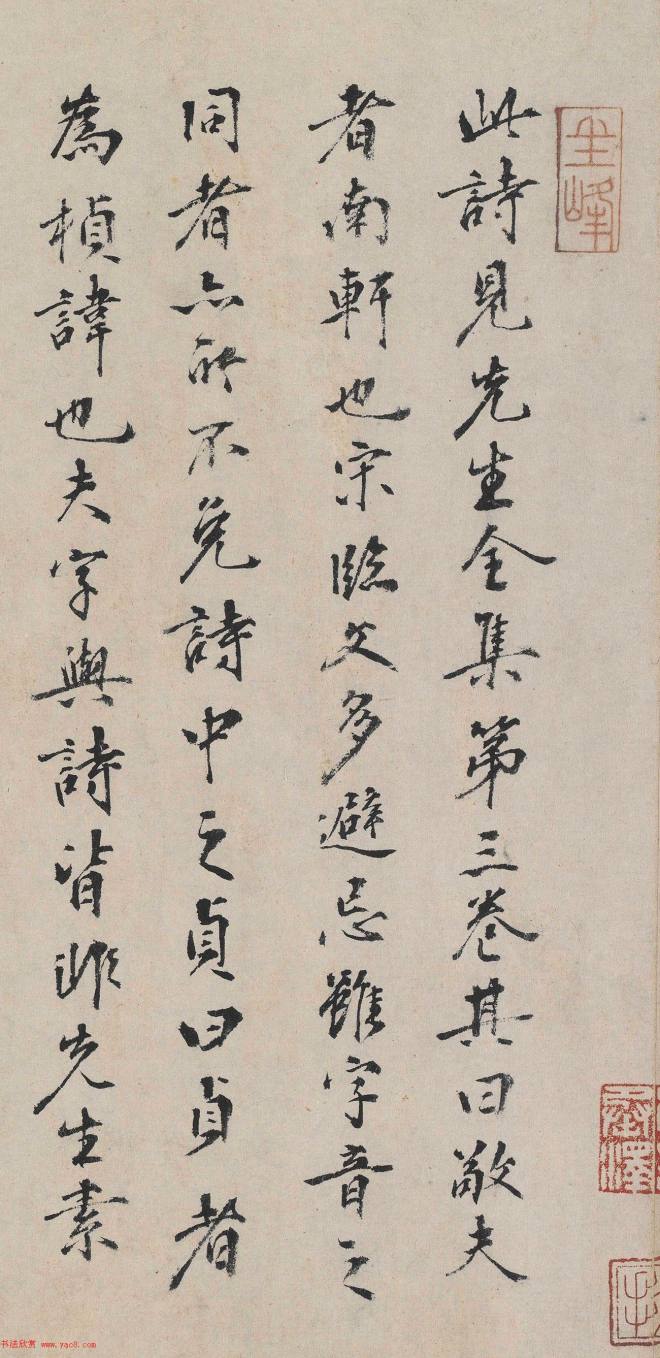 此詩見先生全集第三卷其曰敬夫
者南軒也宋臨文多避忌雖字音之
同者亦所不免詩中之貞曰貞者
為楨諱也夫字與詩皆非先生素
书法欣赏 www.yac8.com